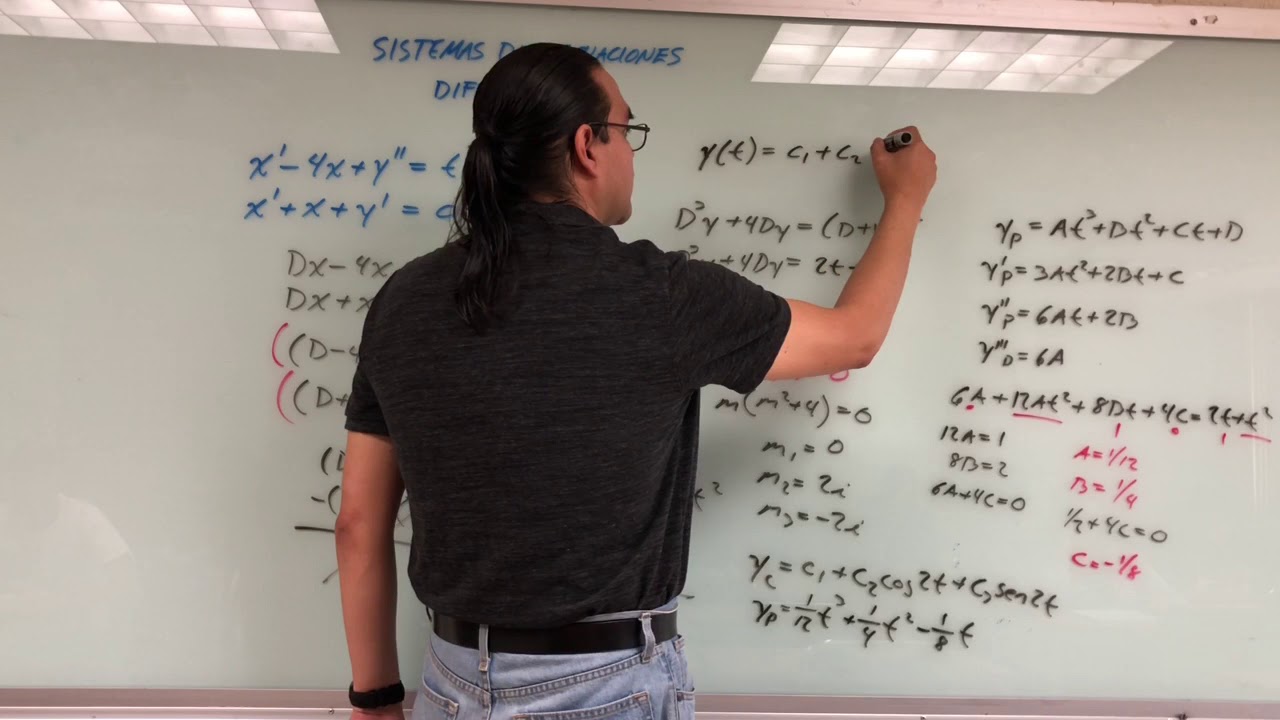 SISTEMAS
DIF
x'-4x+y''= t
x'+x+y' =
Dx-4x
Dx+x
((D-4
((D+
(D
-(
y(t)= c₁+c₂
D³y+4Dy=(D+
+4Dy= 2t
m(m²+4)=0
m₁=0
m₂=2i
m₃=-2i
y_c=c₁+c₂cos2t+c₃sen2t
y_p=1/12t³+1/4t²-1/8t
y_p=At³+Dt²+Ct+D
y'_p=3At²+2Bt+C
y''_p=6At+2B
y'''_D=6A
6A+12At²+8Dt+4C=2t+t²
12A=1
8B=2
6A+4C=0
A=1/12
B=1/4
1/2+4C=0
C=-1/8